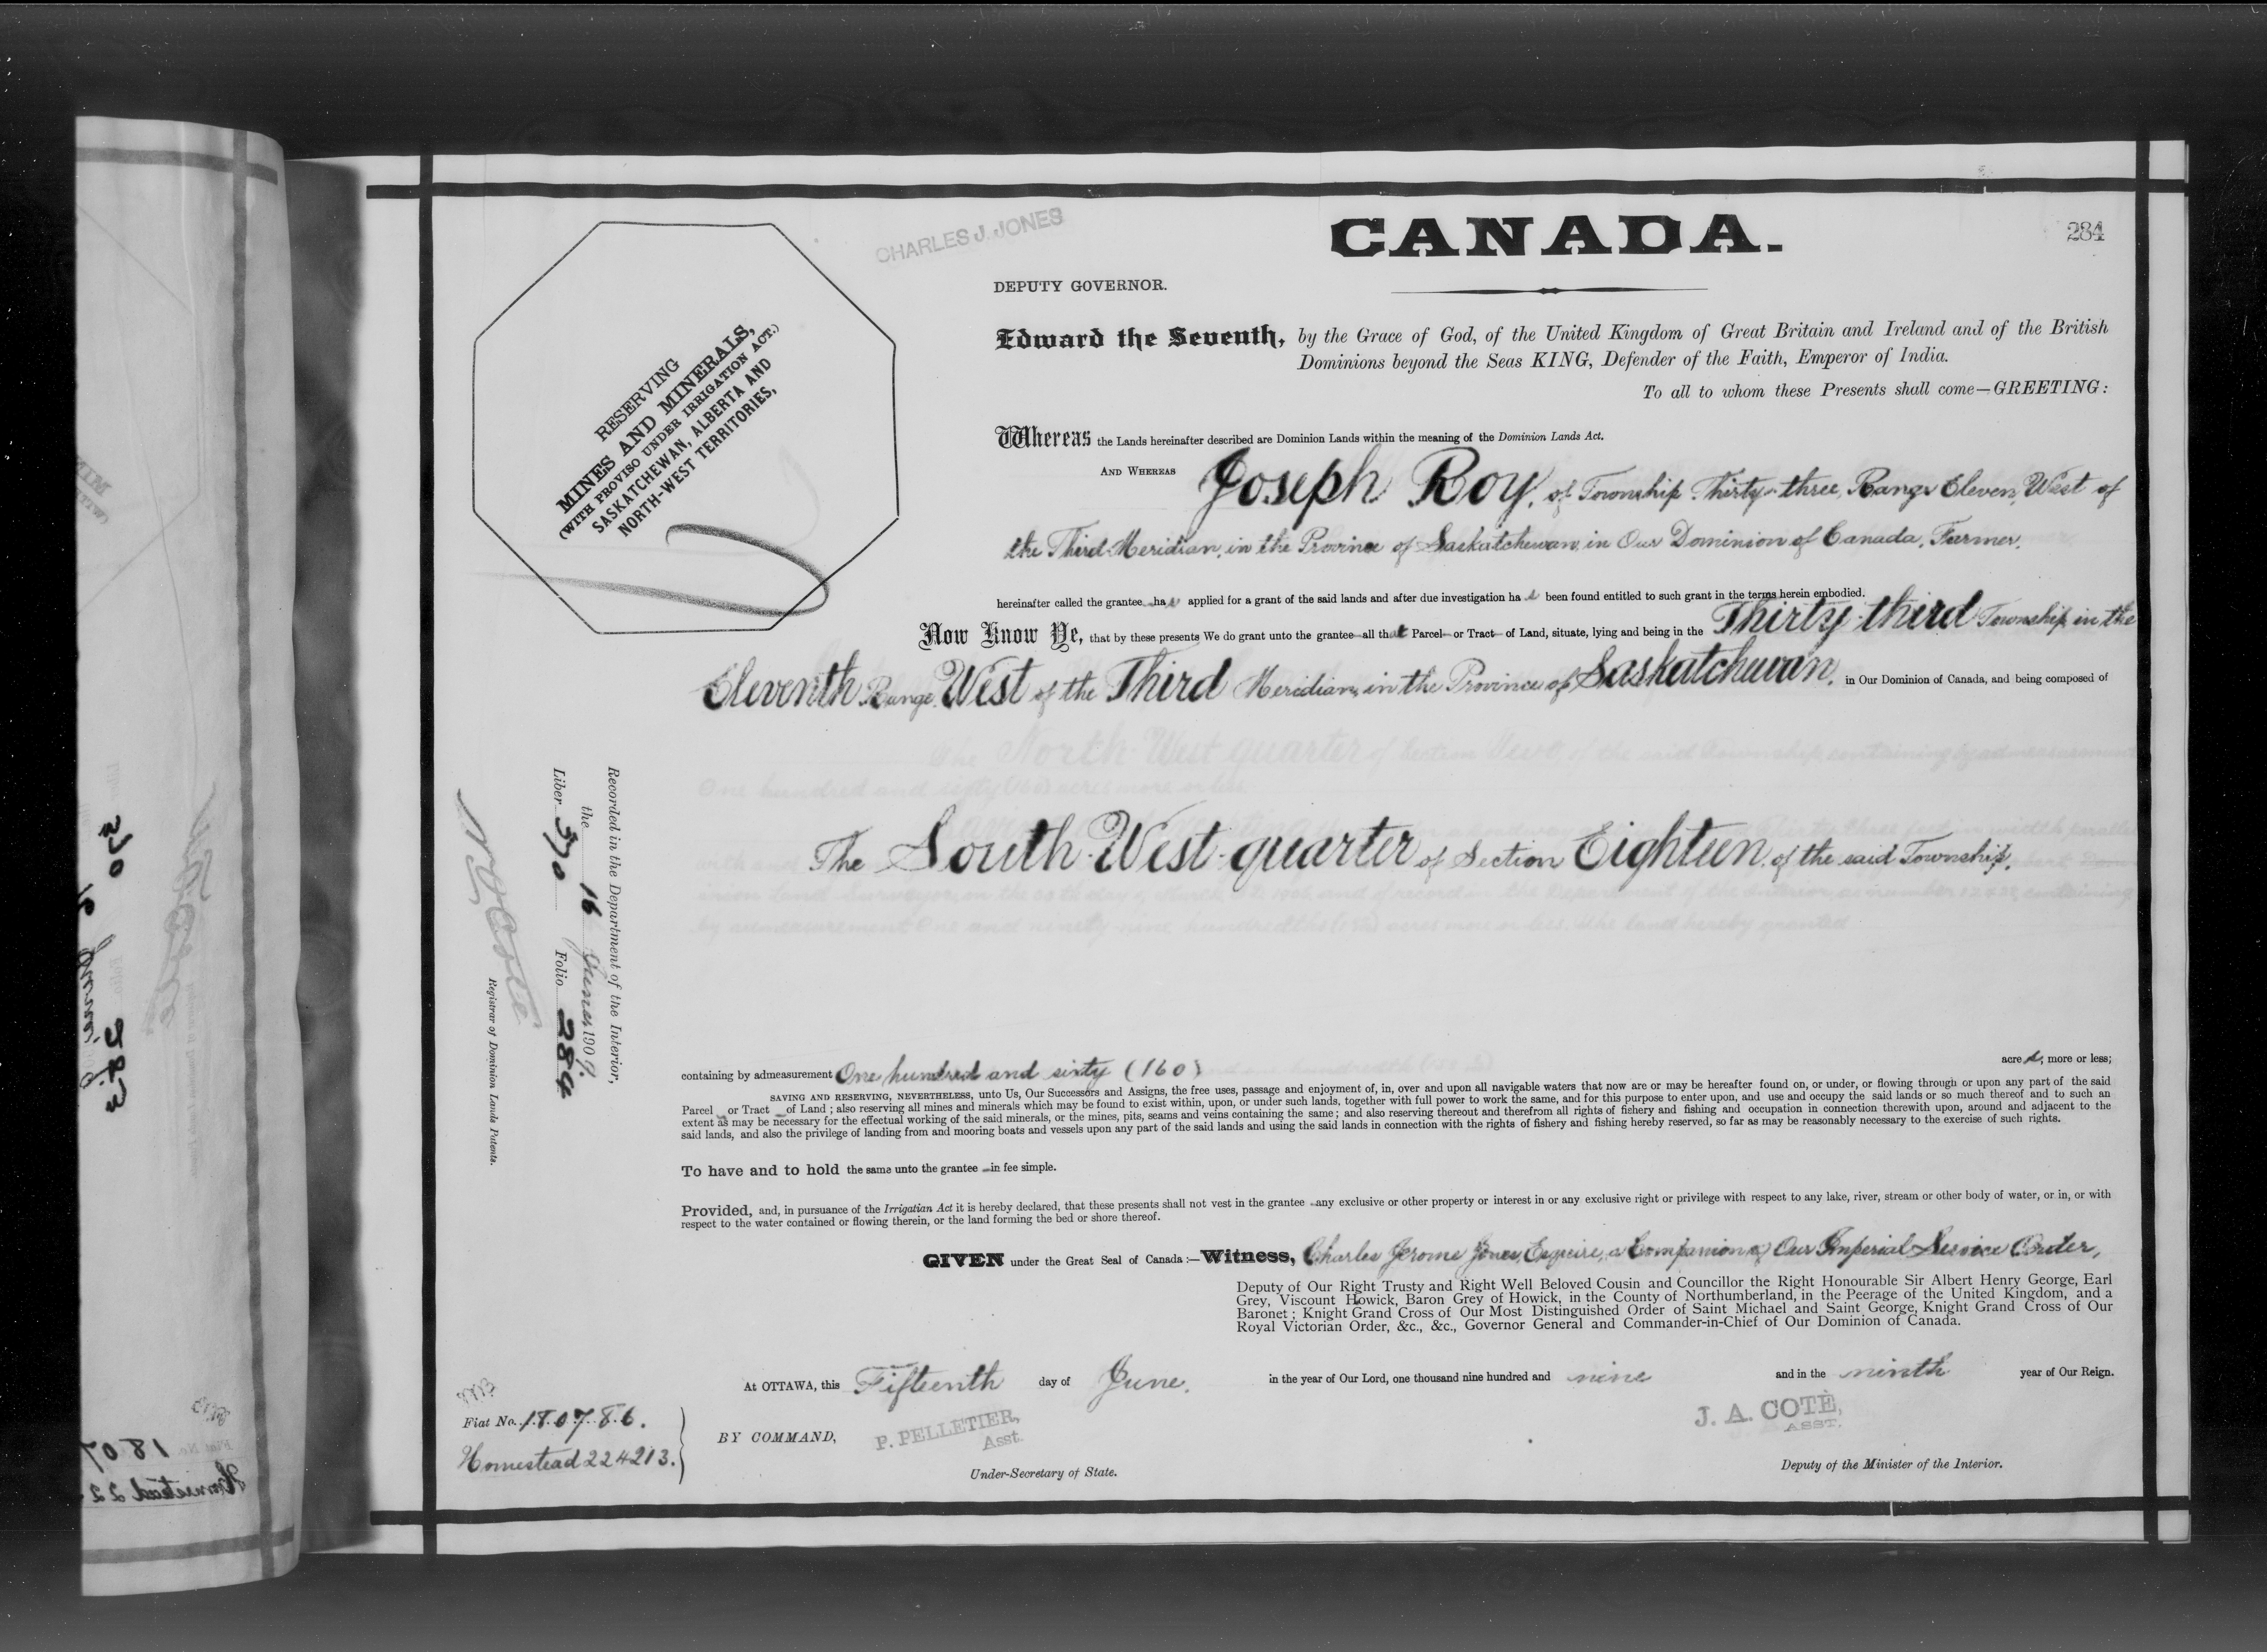 CHARLES J. JONES
CANADA.
284
DEPUTY GOVERNOR.
RESERVING
MINES AND MINERALS,
(WITH PROVISO UNDER IRRIGATION ACT.)
SASKATCHEWAN, ALBERTA AND
NORTH-WEST TERRITORIES,
Edward the Seventh, by the Grace of God, of the United Kingdom of Great Britain and Ireland and of the British
Dominions beyond the Seas KING, Defender of the Faith, Emperor of India.
To all to whom these Presents shall come—GREETING:
Whereas the Lands hereinafter described are Dominion Lands within the meaning of the Dominion Lands Act.
AND WHEREAS Joseph Roy, of Township Thirty-three, Range Eleven, West of
the Third Meridian, in the Province of Saskatchewan, in Our Dominion of Canada, Farmer,
hereinafter called the grantee has applied for a grant of the said lands and after due investigation has been found entitled to such grant in the terms herein embodied.
Now Know Ye, that by these presents We do grant unto the grantee all that Parcel or Tract of Land, situate, lying and being in the Thirty-third Township, in the
Eleventh Range West of the Third Meridian, in the Province of Saskatchewan, in Our Dominion of Canada, and being composed of
The South-West-quarter of Section Eighteen, of the said Township,
containing by admeasurement One hundred and sixty (160) acres, more or less;
SAVING AND RESERVING, NEVERTHELESS, unto Us, Our Successors and Assigns, the free uses, passage and enjoyment of, in, over and upon all navigable waters that now are or may be hereafter found on, or under, or flowing through or upon any part of the said
Parcel or Tract of Land; also reserving all mines and minerals which may be found to exist within, upon, or under such lands, together with full power to work the same, and for this purpose to enter upon, and use and occupy the said lands or so much thereof and to such an
extent as may be necessary for the effectual working of the said minerals, or the mines, pits, seams and veins containing the same; and also reserving thereout and therefrom all rights of fishery and fishing and occupation in connection therewith upon, around and adjacent to the
said lands, and also the privilege of landing from and mooring boats and vessels upon any part of the said lands and using the said lands in connection with the rights of fishery and fishing hereby reserved, so far as may be reasonably necessary to the exercise of such rights.
To have and to hold the same unto the grantee in fee simple.
Provided, and, in pursuance of the Irrigatian Act it is hereby declared, that these presents shall not vest in the grantee any exclusive or other property or interest in or any exclusive right or privilege with respect to any lake, river, stream or other body of water, or in, or with
respect to the water contained or flowing therein, or the land forming the bed or shore thereof.
GIVEN under the Great Seal of Canada:—Witness, Charles Jerome Jones, Esquire, a Companion of Our Imperial Service Order,
Deputy of Our Right Trusty and Right Well Beloved Cousin and Councillor the Right Honourable Sir Albert Henry George, Earl
Grey, Viscount Howick, Baron Grey of Howick, in the County of Northumberland, in the Peerage of the United Kingdom, and a
Baronet; Knight Grand Cross of Our Most Distinguished Order of Saint Michael and Saint George, Knight Grand Cross of Our
Royal Victorian Order, &c., &c., Governor General and Commander-in-Chief of Our Dominion of Canada.
At OTTAWA, this Fifteenth day of June, in the year of Our Lord, one thousand nine hundred and nine and in the ninth year of Our Reign.
BY COMMAND,
P. PELLETIER,
Asst.
Under-Secretary of State.
J. A. COTÉ,
ASST.
Deputy of the Minister of the Interior.
Fiat No. 180786.
Homestead 224213.
Recorded in the Department of the Interior,
the 16 June 1909.
Liber 370 Folio 284
N. O. Coté
Registrar of Dominion Lands Patents.